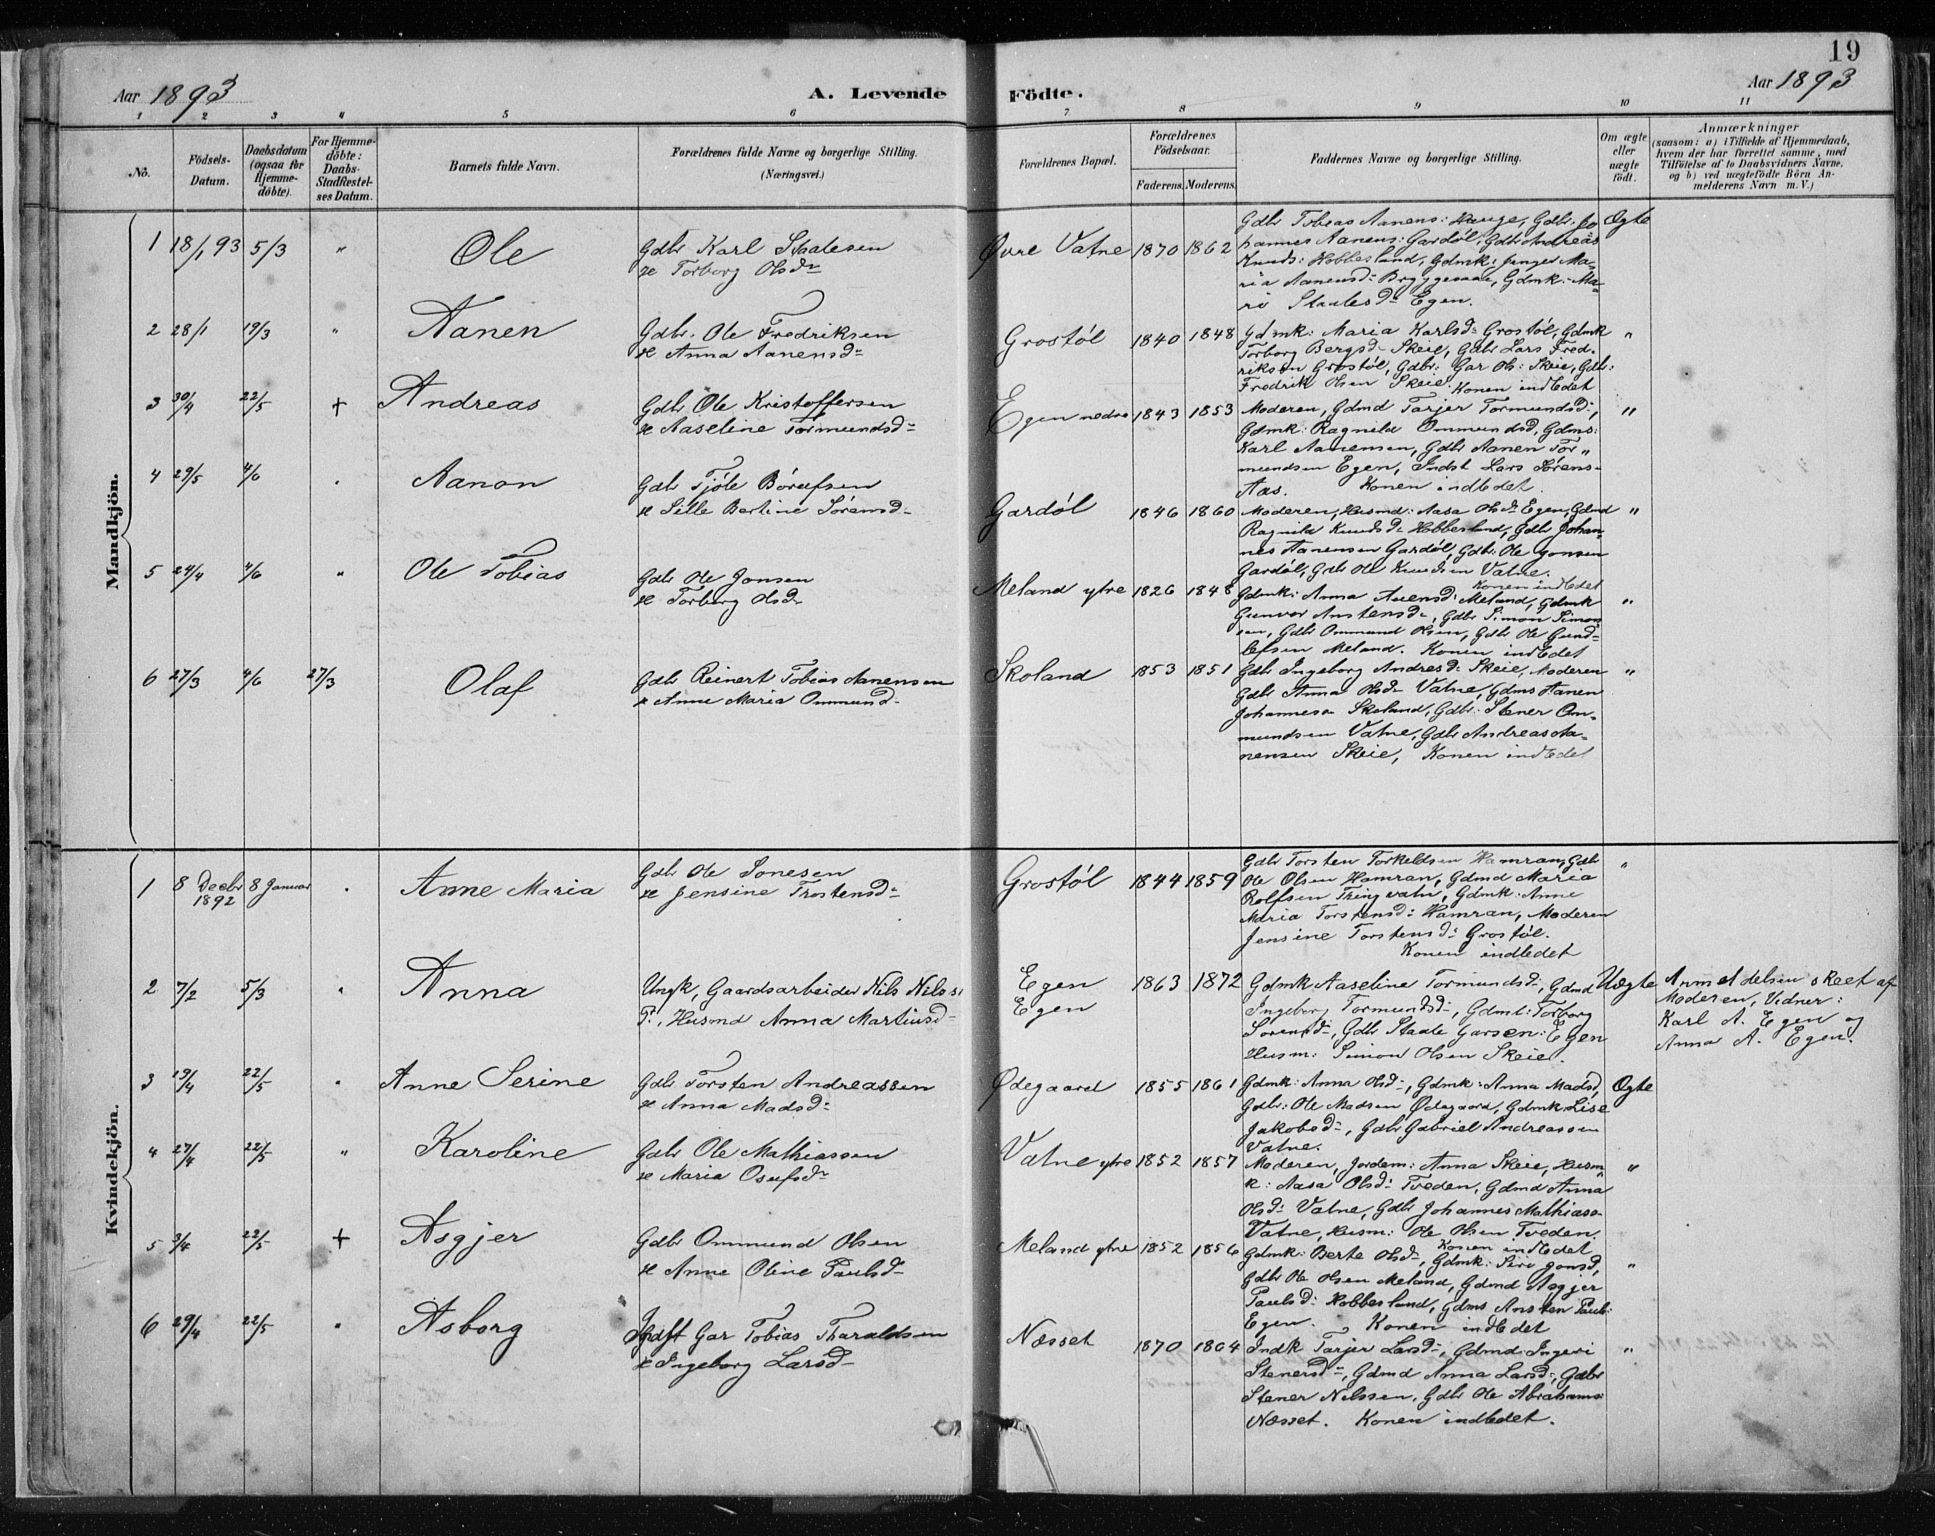 19
Aar 1893
A. Levende Födte.
Aar 1893
1 2 3 4 5 6 7 8 9 10 11
No.
Födsels-Datum.
Daabsdatum (ogsaa for Hjemme-döbte).
For Hjemme-döbte: Daabs-Stadfæstel-ses Datum.
Barnets fulde Navn.
Forældrenes fulde Navne og borgerlige Stilling.
(Næringsvei.)
Forældrenes Bopæl.
Forældrenes Födselsaar.
Faderens. Moderens.
Faddernes Navne og borgerlige Stilling.
Om ægte eller uægte födt.
Anmærkninger
(saasom: a) i Tilfælde af Hjemmedaab,
hvem der har forrettet samme, med
Tilföielse af to Daabsvidners Navne,
og b) ved uægtefödte Börn An-
melderens Navn m. V.)
Mandkjön.
1 18/1 93 5/3 " Ole
Gdbr Karl Staalesen
& Torborg Olsdr
Øvre Vatne 1870 1862
Gdbr Tobias Aanens: Hauge, Gdbr: Jo
hannes Aanens: Gardøl, Gdbr Andreas
Knuds: Hobbesland, Gdmk: Inger Ma-
ria Aanensd: Bryggesaae, Gdmk: Ma-
ri Staalesd: Egen.
Ægte
2 28/1 19/3 " Aanen
Gdbr. Ole Fredriksen
& Anna Aanensd:
Grostøl 1840 1848
Gdmk: Maria Karlsd: Grostøl, Gdmk
Torborg Bergsd: Skeie, Gdbr Lars Fred-
riksen Grostøl, Gdbr: Gar Ols: Skeie, Gdbr:
Fredrik Olsen Skeie. Konen indledet
"
3 30/4 22/5 + Andreas
Gdbr Ole Kristoffersen
& Aaseline Tormundsd:
Egen nedre 1843 1853
Moderen, Gdmd Tarjer Tormundsd:,
Gdmk: Ragnild Ommundsd, Gdms:
Karl Aanensen, Gdbr Aanen Tor"
mundsen Egen, Indst Lars Sørens-
Aas. Konen indledet.
"
4 29/5 4/6 " Aanon
Gdbr Tjøle Børufsen
& Sille Bertine Sörensd:
Gardøl 1846 1860
Moderen, Husmd: Aasa Olsd: Egen, Gdmd
Ragnild Knudsd: Hobbesland, Gdbr Johan-
nes Aanensen Gardøl, Gdbr: Ole Jonsen
Gardøl, Gdbr Ole Knudsen Vatne.
Konen indledet
"
5 24/4 4/6 " Ole Tobias
Gdbr Ole Jonsen
& Torborg Olsdr
Meland ytre 1826 1848
Gdmk: Anna Auensd: Meland, Gdmk
Gunvor Anstensd:, Gdbr Simon Simon
sen, Gdbr Ommund Olsen, Gdbr Ole Gund-
lefsen Meland. Konen indledet
"
6 27/3 4/6 27/3 Olaf
Gdbr Reinert Tobias Aanensen
& Anne Maria Ommund-
Skoland 1853 1851
Gdbr Ingeborg Andresd: Skeie, Moderen
Gdbr Anna Olsdr Vatne, Gdms Aanen
Johannesen Skoland, Gdbr: Stener Om-
mundsen Vatne, Gdbr Andreas Aa-
nensen Skeie, Konen indledet
"
Kvindekjön.
1 8 Decbr 1892 8 Januar " Anne Maria
Gdbr Ole Sonesen
& Jensine Trostensd:
Grostøl 1844 1859
Gdbr Torsten Torkeldsen Hamran, Gdbr
Ole Olsen Hamran, Gdmd Maria
Rolfsen Tringvatn, Gdmk: Anne
Maria Torstensd: Hamran, Moderen
Jensine Torstensd: Grostøl.
Konen indledet
"
2 7/2 5/3 " Anna
Ungk, Gaardsarbeider Nils Nilss:
P., Husmd Anna Martinsd:
Egen
Egen
1863 1872
Gdmk Aaseline Tormundsd:, Gdmd
Ingeborg Tormundsd:, Gdmt: Torborg
Sørensd:, Gdbr Staale Garsen: Egen
Husm: Simon Olsen Skeie.
Uægte
Anmeldelsen skeet af
Moderen, Vidner:
Karl A. Egen og
Anna A. Egen.
3 19/4 22/5 " Anne Serine
Gdbr Torsten Andreassen
& Anna Madsd:
Ødegaard 1855 1861
Gdmk: Anna Olsd:, Gdmk: Anna Madsd,
Gdbr: Ole Madsen Ødegaard, Gdmk Lise
Jakobsd:, Gdbr Gabriel Andreassen
Vatne.
Ægte
4 27/4 22/5 " Karoline
Gdbr Ole Mathiassen
& Maria Osufsdr
Vatne ytre 1852 1857
Moderen, Jordem: Anna Skeie, Husm
k: Aasa Olsd: Tveden, Gdmd Anna
Olsd: Vatne, Gdbr Johannes Mathiass-
Vatne, Husm: Ole Olsen Tveden.
Konen indledet
"
5 3/4 22/5 + Asgjer
Gdbr Ommund Olsen
& Anne Oline Paulsd-
Meland ytre 1852 1856
Gdmk: Berte Olsdr, Gdmk: Siri Jonsd,
Gdbr Ole Olsen Meland, Gdmd Asgjer
Paulsd: Hobbesland, Gdms Ansten Pauls:
Egen. Konen indledet
"
6 29/4 22/5 " Asborg
Indft Gar Tobias Tharaldsen
& Ingeborg Larsd-
Næsset 1870 1864
Indk Tarjer Larsd:, Gdmd Ingeri
Stenersd:, Gdmd Anna Larsd:, Gdbr
Stener Nilssen, Gdbr Ole Abrahams:
Næsset. Konen indledet.
"